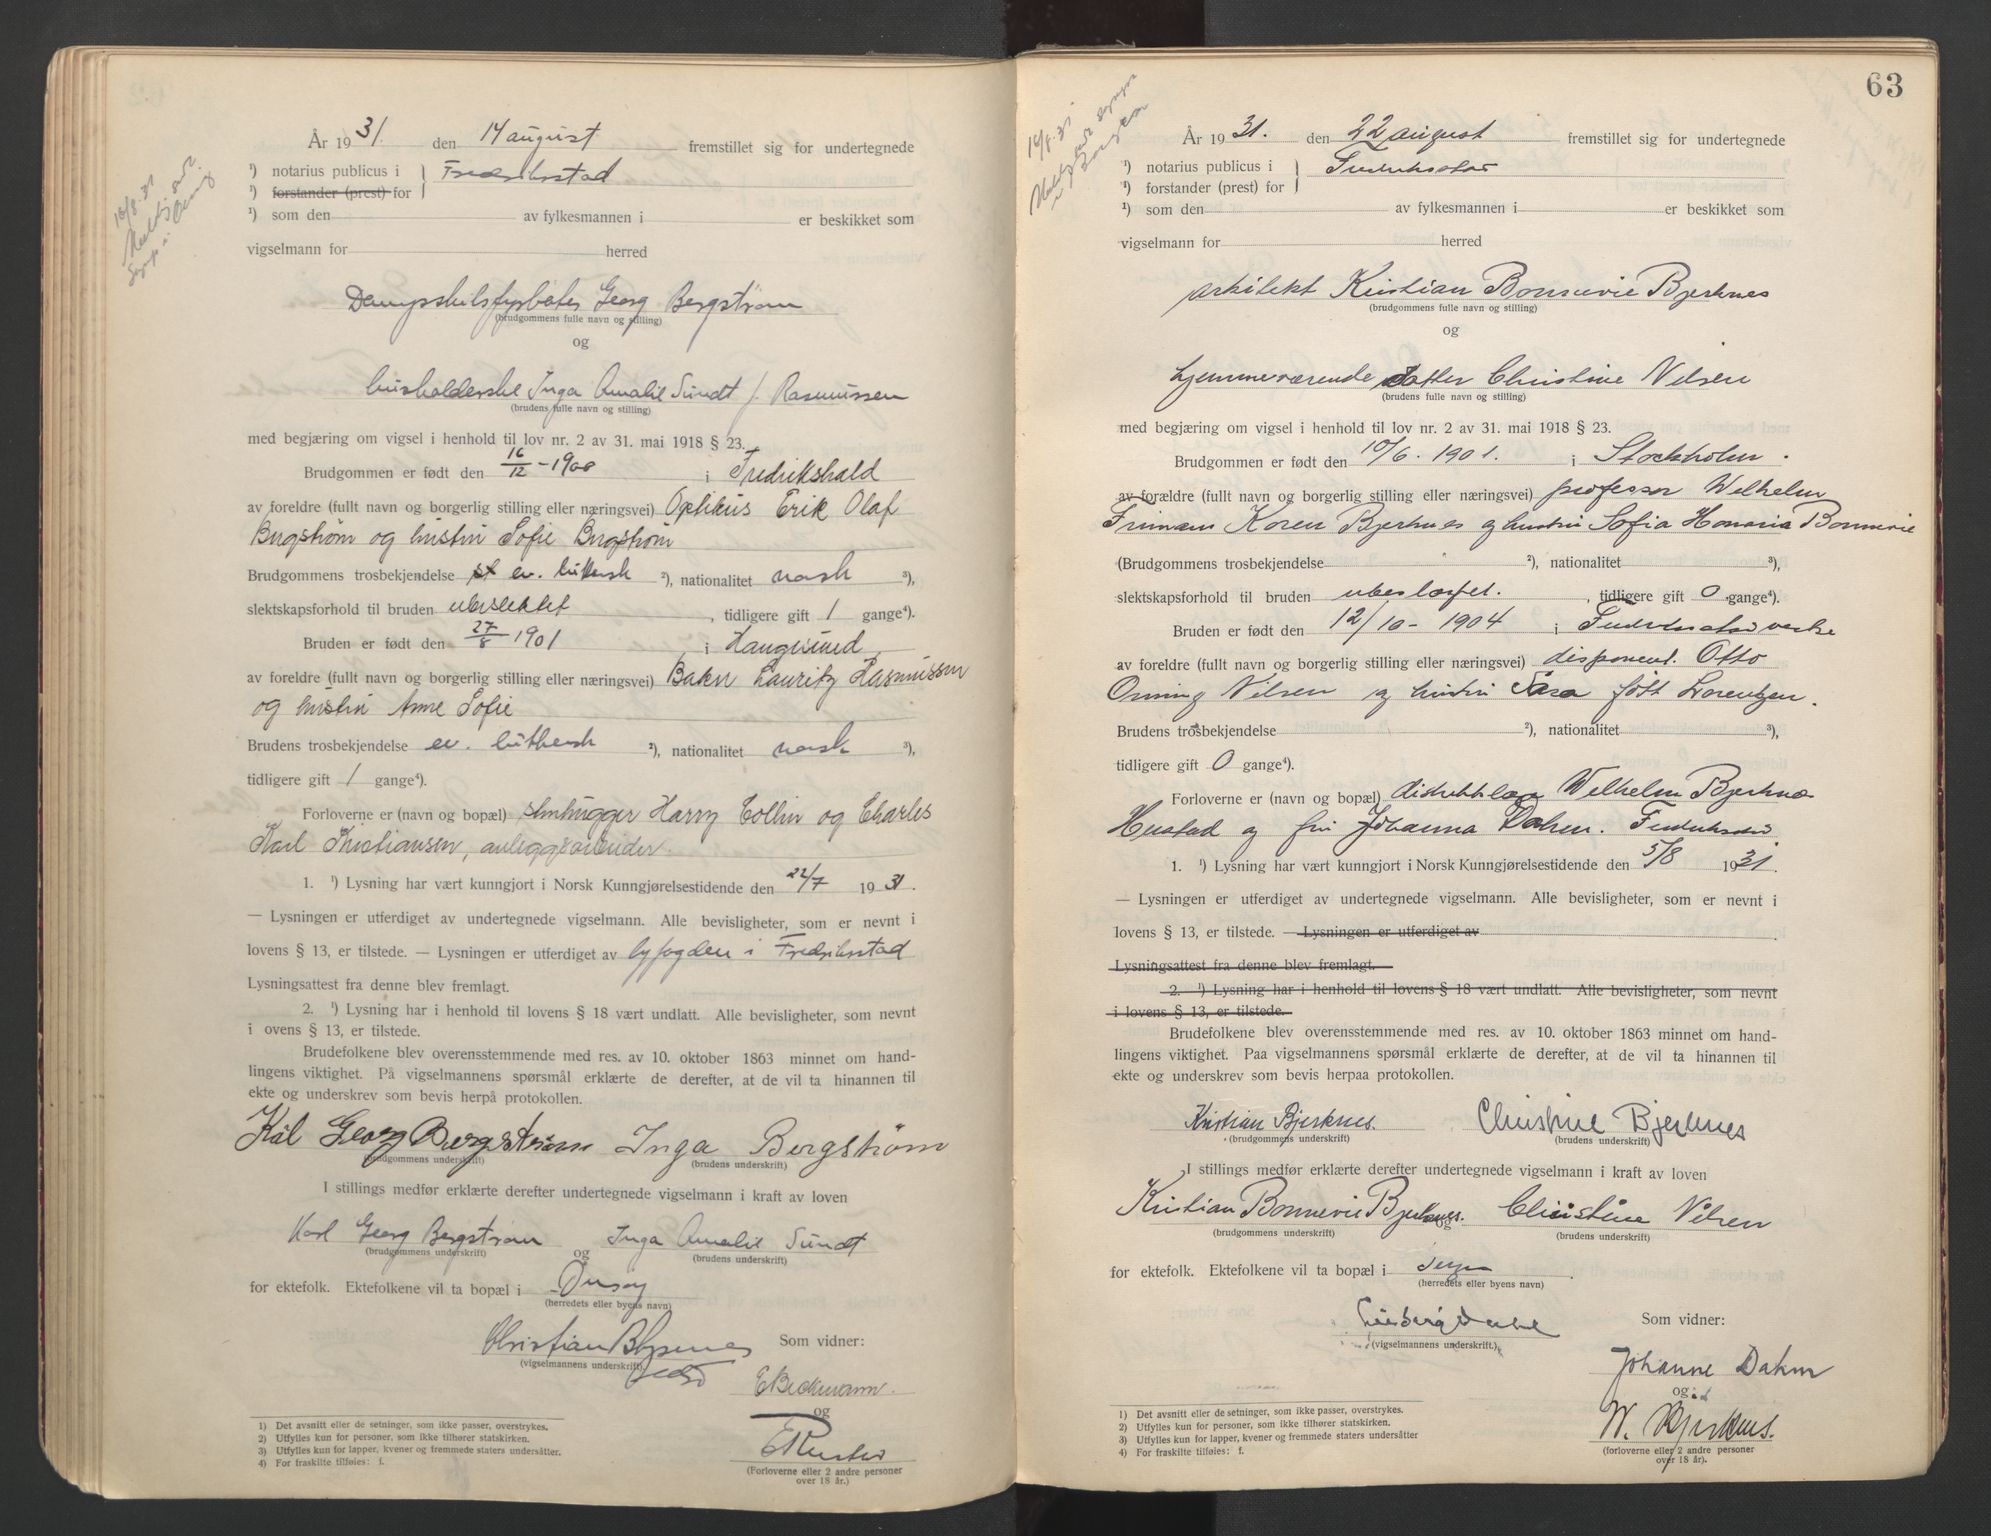 År 1931. den 14 august fremstillet sig for undertegnede
¹) notarius publicus i } Fredrikstad
¹) forstander (prest) for
¹) som den av fylkesmannen i er beskikket som
vigselmann for herred
Georg Bergstrøm
(brudgommens fulle navn og stilling)
og
husholderske Inga Amalie Sundt f. Rasmussen
(brudens fulle navn og stilling)
med begjæring om vigsel i henhold til lov nr. 2 av 31. mai 1918 § 23.
Brudgommen er født den 16/12 - 1908 i Fredrikshald
av foreldre (fullt navn og borgerlig stilling eller næringsvei) Optikus Erik Olaf
Bergstrøm og hustru Sofie Bergstrøm
Brudgommens trosbekjendelse ev. luthersk ²), nationalitet norsk ³),
slektskapsforhold til bruden ubeslektet, tidligere gift 1 gange⁴).
Bruden er født den 27/8 - 1901 i Haugesund,
av foreldre (fullt navn og borgerlig stilling eller næringsvei) Baker Lauritz Rasmussen
og hustru Anne Sofie
Brudens trosbekjendelse ev. luthersk ²), nationalitet norsk ³),
tidligere gift 1 gange⁴).
Forloverne er (navn og bopæl) stenhugger Harry Collin og Charles
Karl Kristiansen, anleggsarbeider.
1. ¹) Lysning har vært kunngjort i Norsk Kunngjørelsestidende den 22/7 1931.
— Lysningen er utferdiget av undertegnede vigselmann. Alle bevisligheter, som er nevnt i
lovens § 13, er tilstede. — Lysningen er utferdiget av byfogden i Fredrikstad
Lysningsattest fra denne blev fremlagt.
2. ¹) Lysning har i henhold til lovens § 18 vært undlatt. Alle bevisligheter, som nevnt
i ovens § 13, er tilstede.
Brudefolkene blev overensstemmende med res. av 10. oktober 1863 minnet om hand-
lingens viktighet. På vigselmannens spørsmål erklærte de derefter, at de vil ta hinannen til
ekte og underskrev som bevis herpå protokollen.
Karl Georg Bergstrøm Inga Bergstrøm
(brudgommens underskrift) (brudens underskrift)
I stillings medfør erklærte derefter undertegnede vigselmann i kraft av loven
Karl Georg Bergstrøm og Inga Amalie Sundt
(brudgommens underskrift) (brudens underskrift)
for ektefolk. Ektefolkene vil ta bopæl i Onsøy
(herredets eller byens navn)
Christian Som vidner:
(vigselmannens underskrift)
E Beckmann.
og
(Forloverne eller 2 andre personer
over 18 år.)
1) Det avsnitt eller de setninger, som ikke passer, overstrykes.
2) Utfylles kun for personer, som ikke tilhører statskirken.
3) Utfylles kun for lapper, kvener og fremmede staters undersåtter.
4) For fraskilte tilføies: f.
63
År 1931. den 22 august fremstillet sig for undertegnede
¹) notarius publicus i } Fredrikstad
¹) forstander (prest) for
¹) som den av fylkesmannen i er beskikket som
vigselmann for herred
arkitekt Kristian Bonnevie Bjerknes
(brudgommens fulle navn og stilling)
og
hjemmeværende datter Christine Nilsen
(brudens fulle navn og stilling)
med begjæring om vigsel i henhold til lov nr. 2 av 31. mai 1918 § 23.
Brudgommen er født den 10/6. 1901. i Stockholm.
av forældre (fullt navn og borgerlig stilling eller næringsvei) professor Wilhelm
Frimann Koren Bjerknes og hustru Sofia Honoria Bonnevie
(Brudgommens trosbekjendelse ²), nationalitet ³),
slektskapsforhold til bruden ubeslægtet., tidligere gift 0 gange⁴).
Bruden er født den 12/10 - 1904 i Fredrikstad
av foreldre (fullt navn og borgerlig stilling eller næringsvei) disponent. Otto
Nilsen og hustru Sara født Lorentzen.
Brudens trosbekjendelse ²), nationalitet ³),
tidligere gift 0 gange⁴).
Forloverne er (navn og bopæl) distriktslæge Wilhelm Bjerknes
Hustad og fru Johanna Dahm. Fredrikstad
1. ¹) Lysning har vært kunngjort i Norsk Kunngjørelsestidende den 5/8 1931.
— Lysningen er utferdiget av undertegnede vigselmann. Alle bevisligheter, som er nevnt i
lovens § 13, er tilstede. — Lysningen er utferdiget av
Lysningsattest fra denne blev fremlagt.
2. ¹) Lysning har i henhold til lovens § 18 vært undlatt. Alle bevisligheter, som nevnt
i lovens § 13, er tilstede.
Brudefolkene blev overensstemmende med res. av 10. oktober 1863 minnet om hand-
lingens viktighet. Paa vigselmannens spørsmål erklærte de derefter, at de vil ta hinannen til
ekte og underskrev som bevis herpaa protokollen.
Kristian Bjerknes. Christine Bjerknes
(brudgommens underskrift) (brudens underskrift)
I stillings medfør erklærte derefter undertegnede vigselmann i kraft av loven
Kristian Bonnevie Bjerknes. og Christine Nilsen
(brudgommens underskrift) (brudens underskrift)
for ektefolk. Ektefolkene vil ta bopæl i
(herredets eller byens navn)
Som vidner:
(vigselmannens underskrift.)
Johanne Dahm
og
W. Bjerknes.
(forloverne eller 2 andre personer
over 18 år).
1) Det avsnitt eller de setninger, som ikke passer, overstrykes.
2) Utfylles kun for personer, som ikke tilhører statskirken.
3) Utfylles kun for lapper, kvener og fremmede staters undersåtter
4) For fraskilte tilføies: f.